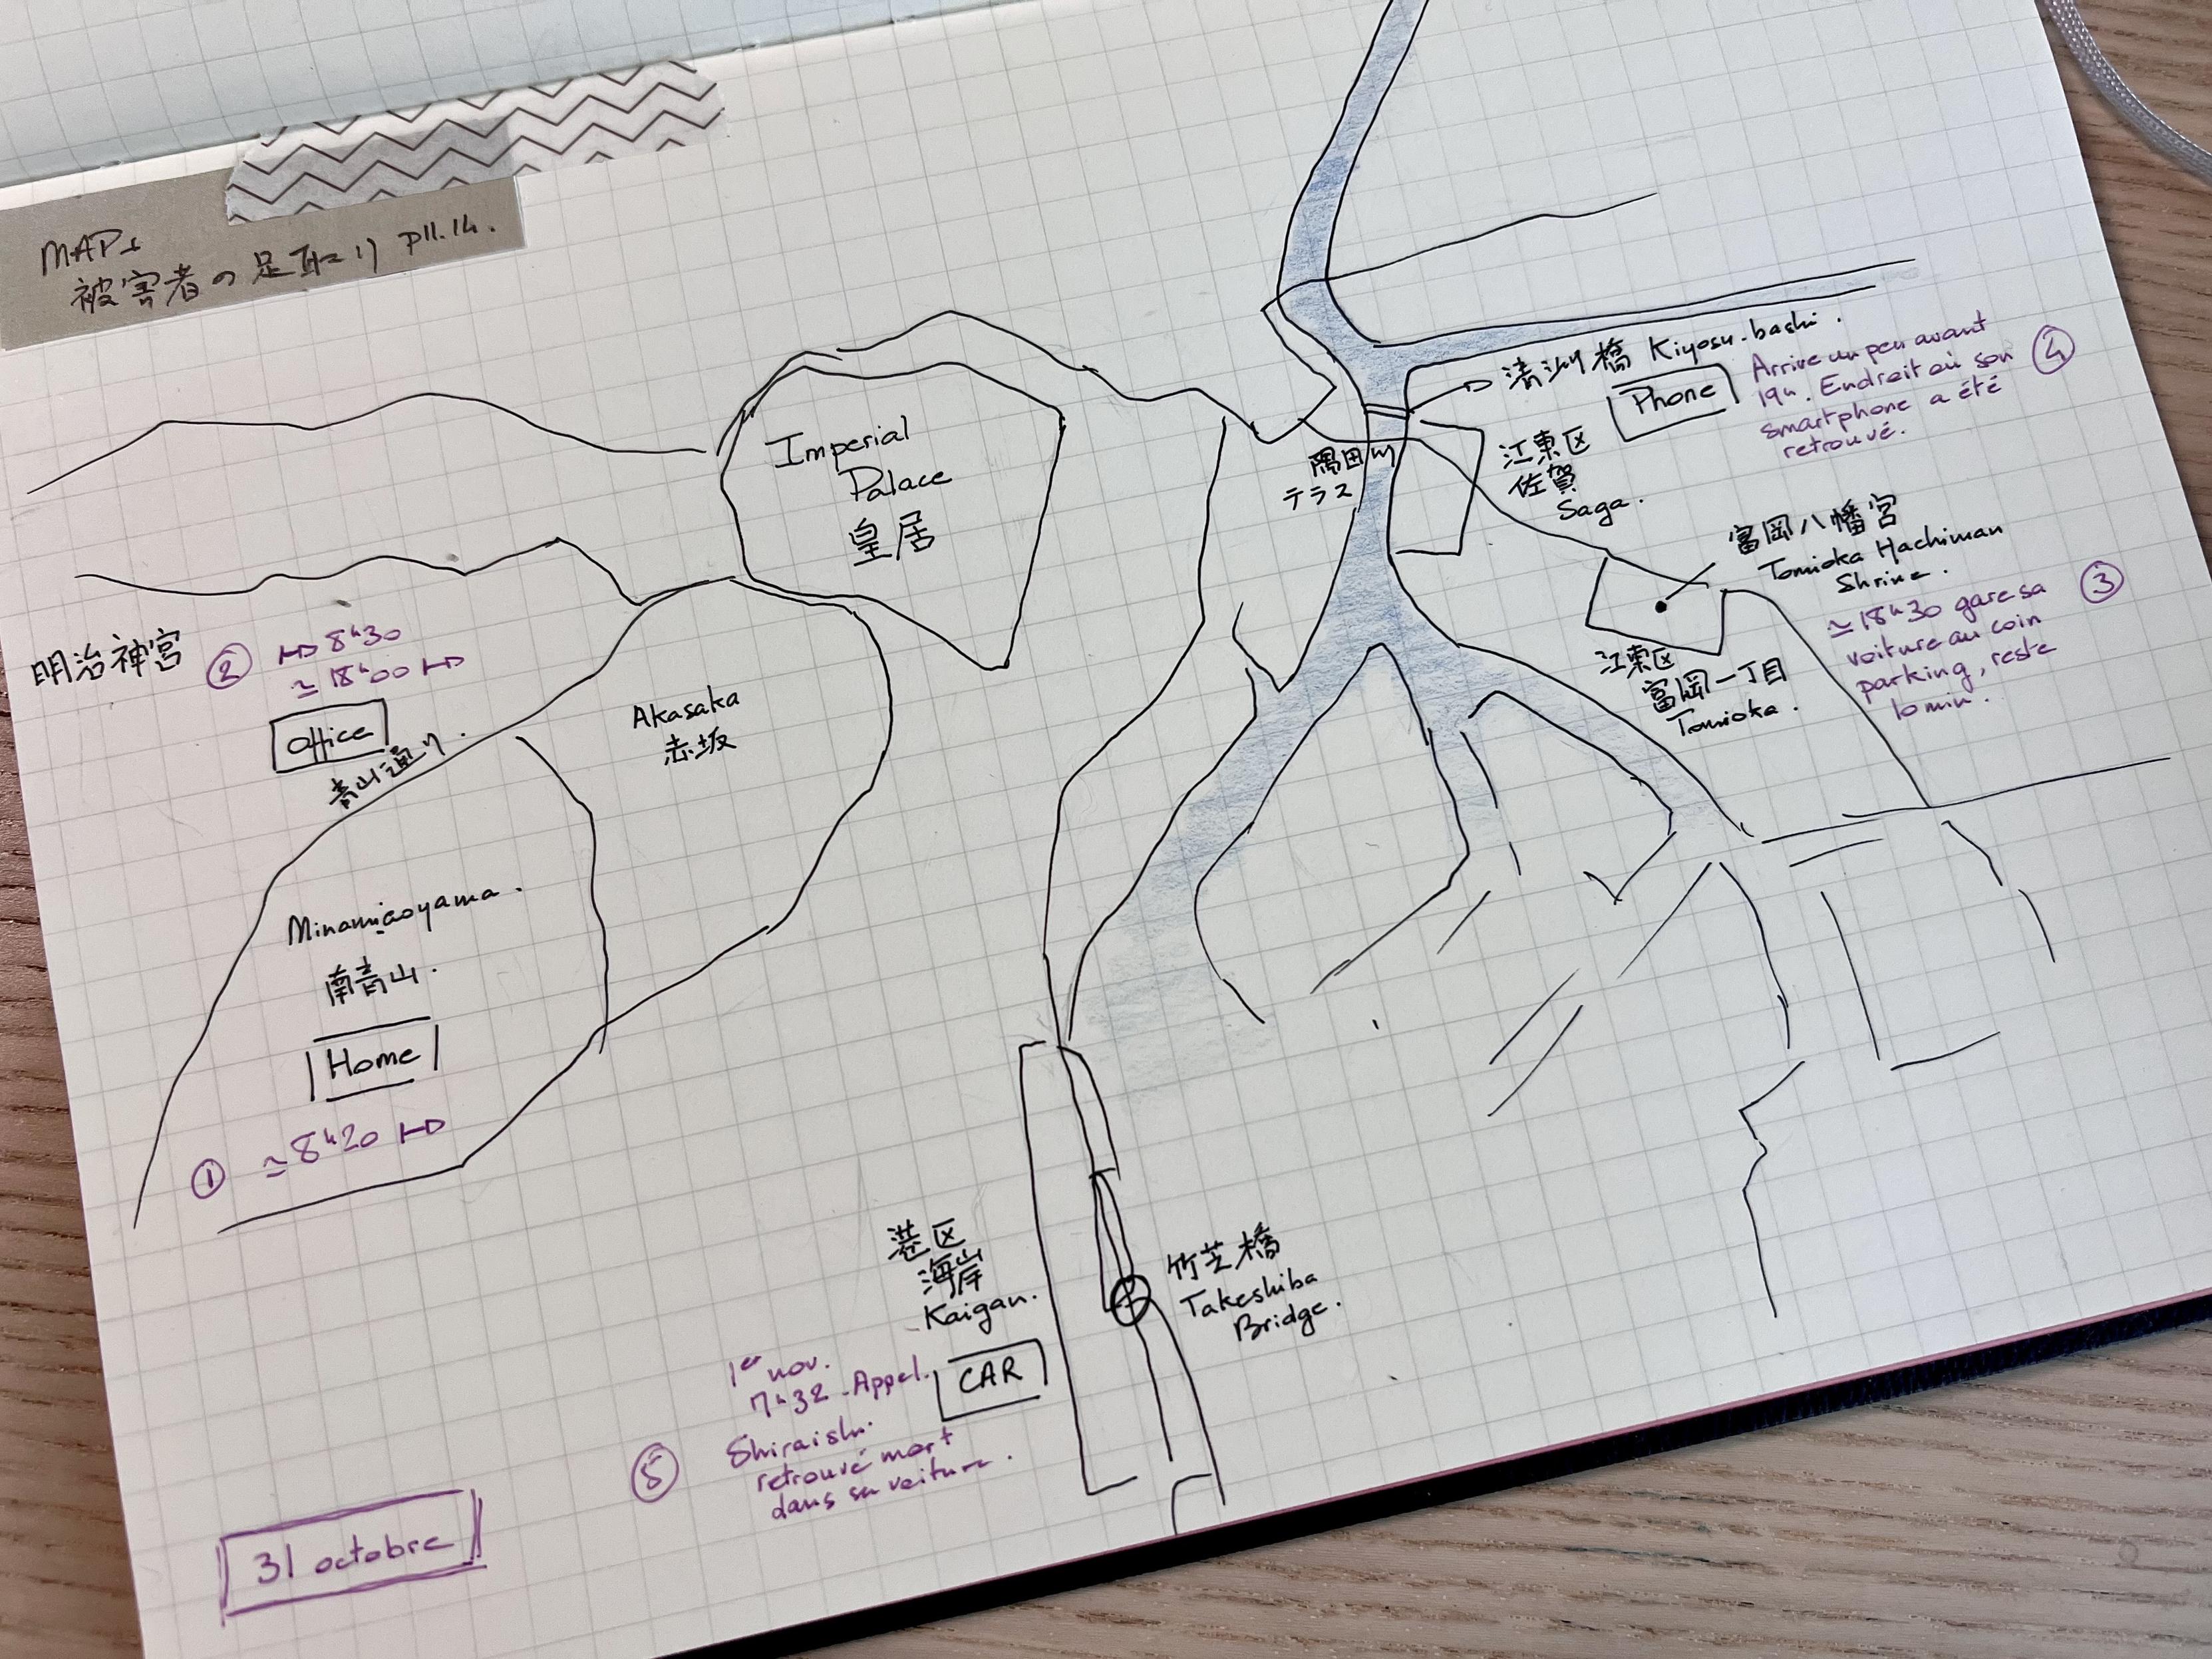 MAP1
被害者の足取り p11.14.
Imperial
Palace
皇居
清洲橋 Kiyosu-bashi.
Phone
Arrive un peu avant
19h. Endroit où son
smartphone a été
retrouvé.
④
隅田川
テラス
江東区
佐賀
Saga.
富岡八幡宮
Tomioka Hachiman
Shrine.
③
≃ 18h30 gare sa
voiture au coin
parking, reste
10 min.
江東区
富岡一丁目
Tomioka.
明治神宮
② ↦ 8h30
≃ 18h00 ↦
Office
青山通り.
Akasaka
赤坂
Minamiaoyama.
南青山.
Home
① ≃ 8h20 ↦
港区
海岸
Kaigan.
CAR
竹芝橋
Takeshiba
Bridge.
1er nov.
7h32 - Appel.
⑤
Shiraishi
retrouvé mort
dans sa voiture.
31 octobre